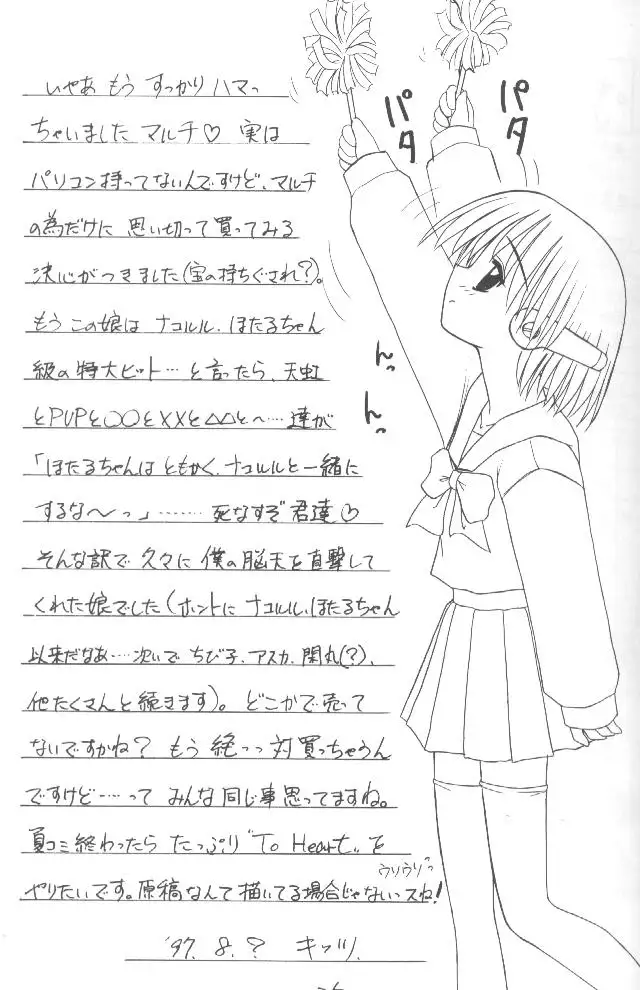 いやあ もう すっかり ハマっ
ちゃいました マルチ♡ 実は
パソコン持ってないんですけど、マルチ
の為だけに 思い切って買ってみる
決心がつきました(宝の持ちぐされ?)。
もう この娘は ナコルル、ほたるちゃん
級の特大ヒット…と言ったら、天虹
とPVPと○○と××と△△と〜…達が
「ほたるちゃんは ともかく、ナコルルと一緒に
するな〜っ」………死なすぞ 君達♡
そんな訳で 久々に 僕の脳天を直撃して
くれた娘でした(ホントに ナコルル、ほたるちゃん
以来だなあ…次いで ちび子、アスカ、関丸(?)、
他たくさんと続きます)。どこかで売って
ないですかね? もう 絶っっ対買っちゃうん
ですけど……って みんな同じ事思ってますね。
夏コミ終わったら たっぷり "To Heart" を
やりたいです。原稿なんて描いてる場合じゃないっスね!
ウリウリ"っ
'97. 8. ? キッツ.
パタ
パタ
んっ
んっ